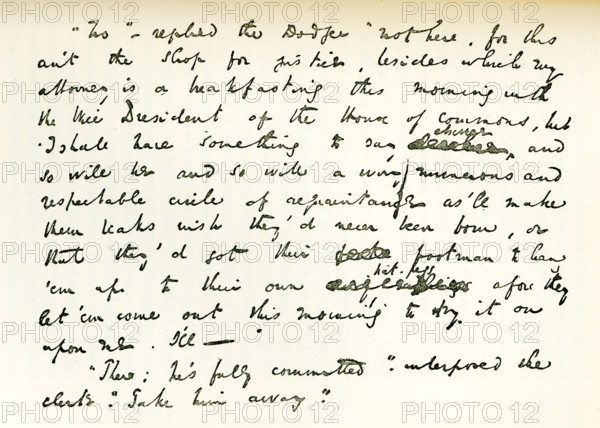 "No" – replied the Dodger "not here, for this
ain't the shop for justice, besides which my
attorney is a breakfasting this morning with
the Vice President of the House of commons, but
I shall have something to say elsewhere, and
so will he and so will a wery numerous and
respectable circle of acquaintance as'll make
them beaks wish they'd never been born, or
that they'd got their footman to hang
'em up to their own hat-pegs afore they
let 'em come out this morning to try it on
upon me. I'll — "
"There; he's fully committed". interposed the
clerk". Take him away".
PHOTO12